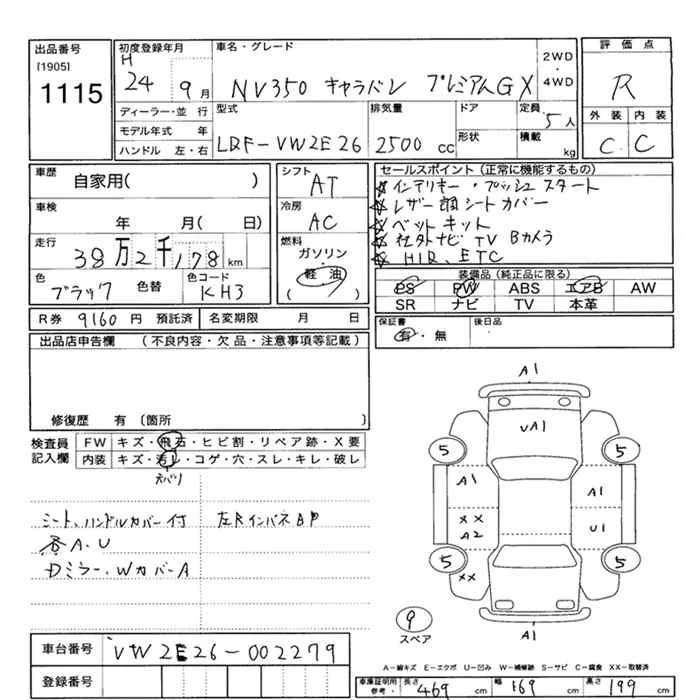 出品番号
[1905]
1115
初度登録年月
H 24 9月
ディーラー・並行
モデル年式 年
ハンドル 左・右
車名・グレード
NV350 キャラバン プレミアムGX
2WD
・
4WD
型式
LDF-VW2E26
排気量
2500 cc
ドア
形状
定員
5人
積載
kg
評価点
R
外装 内装
C C
車歴
自家用( )
車検
年 月( 日)
走行
38万2千178 km
色
ブラック 色替
色コード
KH3
シフト
AT
冷房
AC
燃料
ガソリン
・
軽油
( )
セールスポイント (正常に機能するもの)
☆インテリキー・プッシュスタート
☆レザー調シートカバー
☆ベットキット
☆社外ナビ TV Bカメラ
☆HID、ETC
装備品 (純正品に限る)
PS PW ABS エアB AW
SR ナビ TV 本革
R券 9160 円 預託済
名変期限 月 日
保証書
有・無
後日品
出品店申告欄 (不良内容・欠品・注意事項等記載)
修復歴 有 〔箇所 〕
検査員
記入欄
FW キズ・飛石・ヒビ割・リペア跡・X要
内装 キズ・汚レ・コゲ・穴・スレ・キレ・破レ
ネバリ
シート、ハンドルカバー付
各A、U
Dミラー、WカバーA
左RインパネBP
A1
UA1
5
5
A1
A1
XX
A2
U1
5
5
XX
A1
9
スペア
車台番号
VW2E26-002279
登録番号
A−線キズ E−エクボ U−凹み W−補修跡 S−サビ C−腐食 XX−取替済
車庫証明用
参考・
長さ 469 cm
幅 169 cm
高さ 199 cm